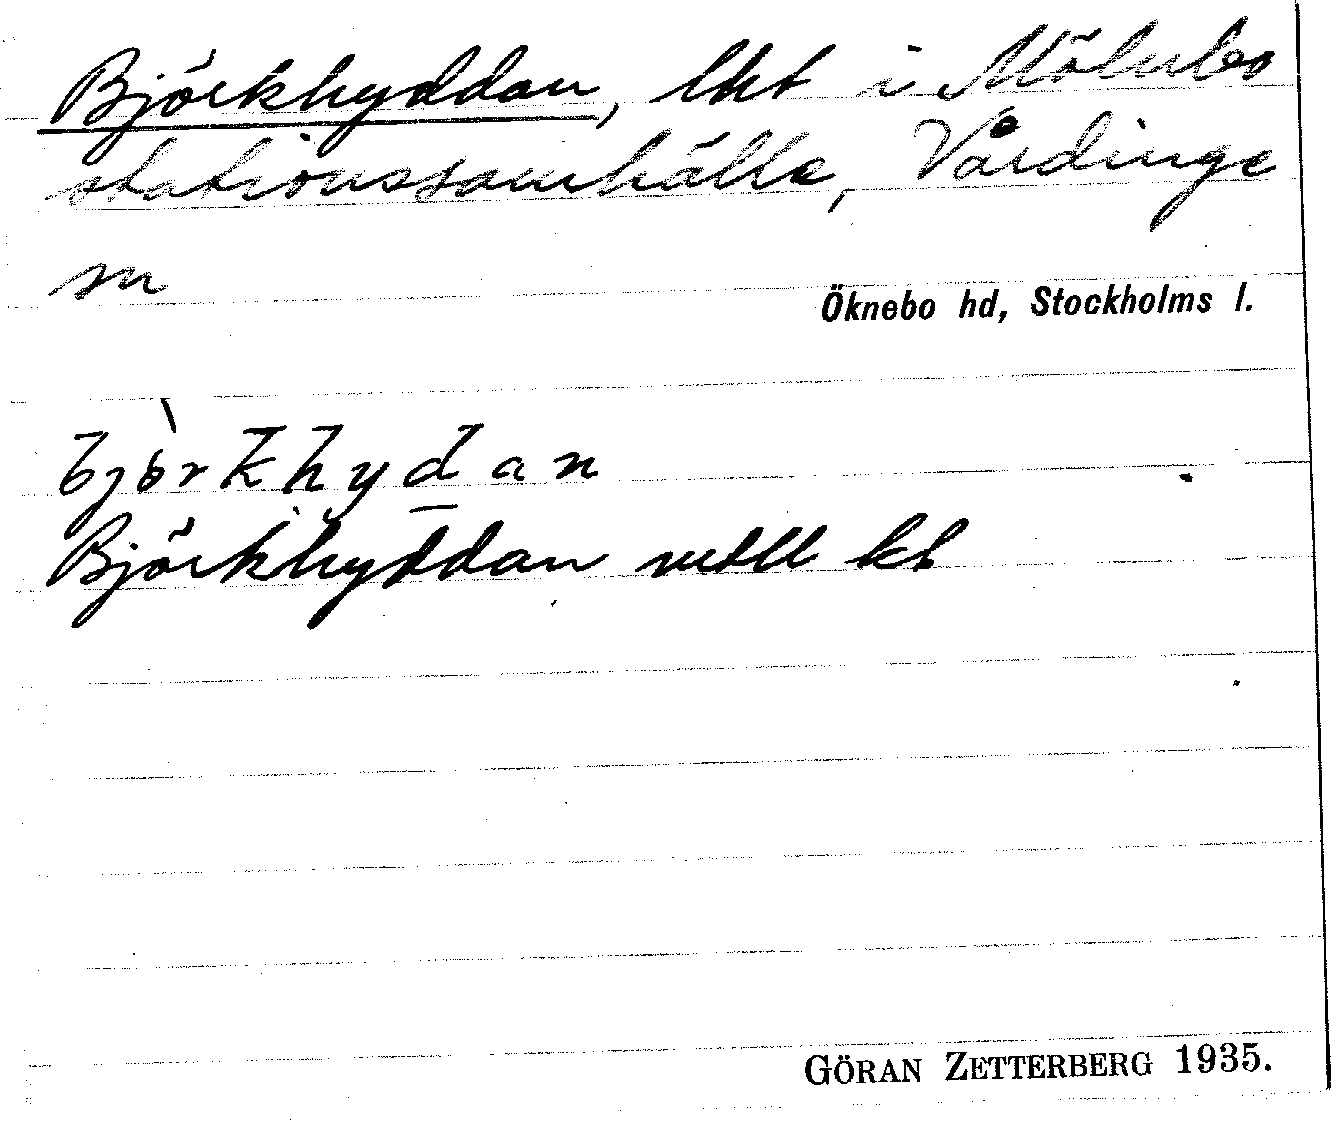 Björkhyddan, lht i Mölnbo
stationssamhälle, Vårdinge
sn
Öknebo hd, Stockholms l.
bjö̀rkhydan
Björkhyddan kt
GÖRAN ZETTERBERG 1935.